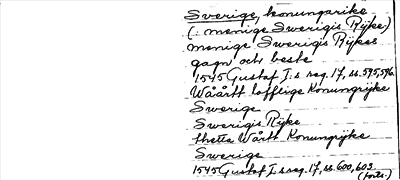 Sverige, konungarike
(: menige Swerigis Rijke)
menige Swerigis Rijkes
gagn och beste
1545 Gustaf I:s reg. 17, ss. 595, 596.
Wåårtt lofflige Konungrijke
Swerige
Swerigis Rijke
thetta Wårtt Konungrijke
Swerige
1545 Gustaf I:s reg. 17, ss. 600, 603
(forts.)